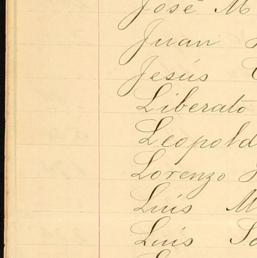 José M
Juan
Jesús
Liberato
Leopold
Lorenzo
Luis M
Luis Sa